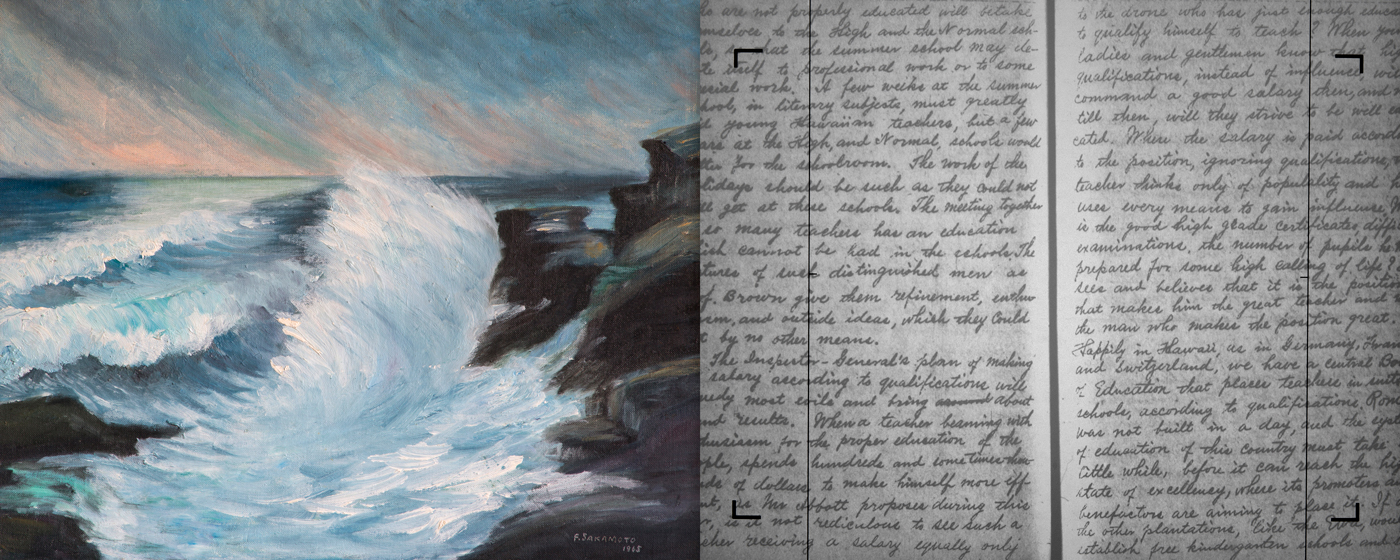 F. SAKAMOTO
1965
are not properly educated will betake
mselves to the High and the Normal sch-
that the summer school may de-
te itself to professional work or to some
ecial work. A few weeks at the summer
hool, in literary subjects, must greatly
young Hawaiian teachers, but a few
are at the High, and Normal, schools would
for the schoolroom. The work of the
lidays should be such as they could not
ll get at these schools. The meeting together
so many teachers has an education
ish cannot be had in the schools. The
tures of such distinguished men as
f. Brown give them refinement, enthu
sm, and outside ideas, which they could
t by no other means.
The Inspector-General's plan of making
salary according to qualifications will
medy most evils and bring about
results. When a teacher beaming with
thusiasm for the proper education of the
ple, spends hundreds and sometimes thou
ds of dollars, to make himself more eff-
t, as Mr Abbott proposes during this
is it not rediculous to see such a
cher receiving a salary equally only
to the drone who has just enough educa
to qualify himself to teach? When you
ladies and gentlemen know that to
qualifications, instead of influence
command a good salary then, and
till then, will they strive to be well
cated. Where the salary is paid accor
to the position, ignoring qualifications,
teacher thinks only of popularity and
uses every means to gain influence,
is the good high grade certificates, diff
examinations, the number of pupils he
prepared for some high calling of life?
sees and believes that it is the positio
that makes him the great teacher and
the man who makes the position great.
Happily in Hawaii, as in Germany,
and Switzerland, we have a central
of Education that places teachers in
schools, according to qualifications. Rom
was not built in a day, and the sys
of education of this country must take
little while, before it can reach the
state of excellency, where its promoters
benefactors are aiming to place it. If
the other plantations, like the
establish free kindergarten schools and